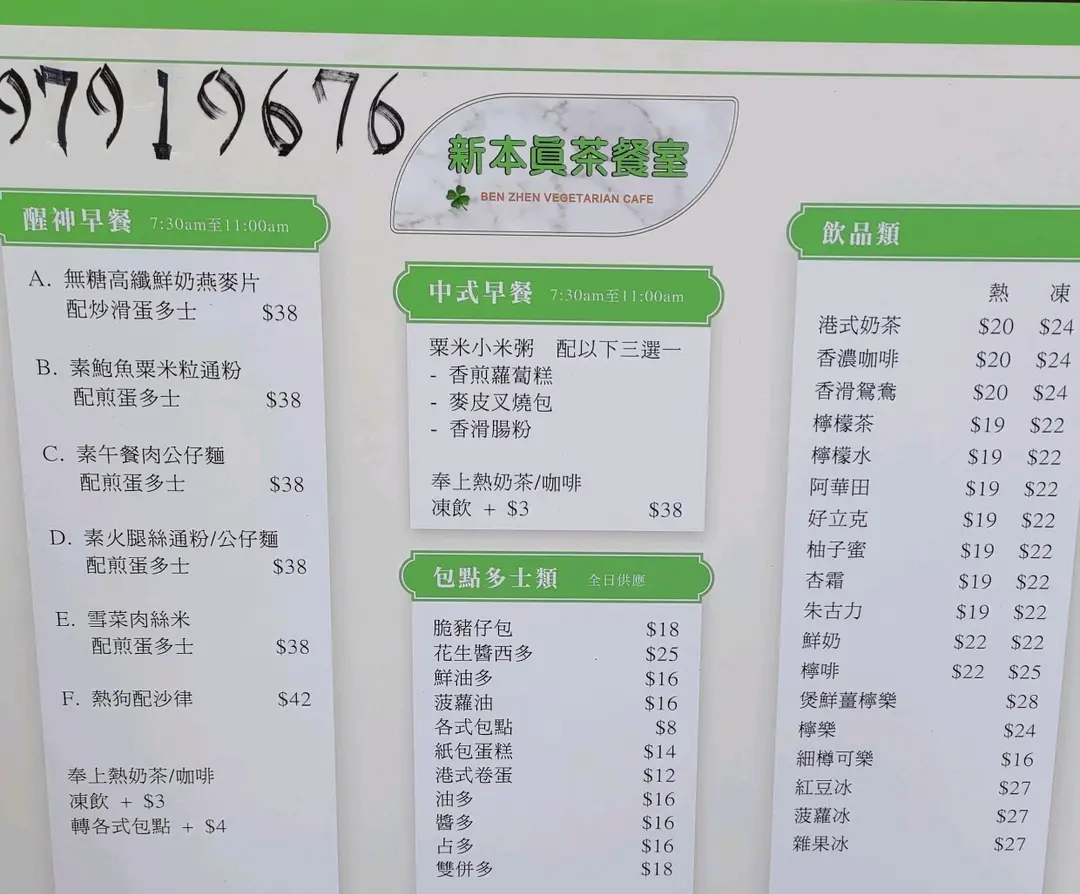 97919676
新本眞茶餐室
BEN ZHEN VEGETARIAN CAFE
醒神早餐 7:30am至11:00am
A. 無糖高纖鮮奶燕麥片
配炒滑蛋多士 $38
B. 素鮑魚粟米粒通粉
配煎蛋多士 $38
C. 素午餐肉公仔麵
配煎蛋多士 $38
D. 素火腿絲通粉/公仔麵
配煎蛋多士 $38
E. 雪菜肉絲米
配煎蛋多士 $38
F. 熱狗配沙律 $42
奉上熱奶茶/咖啡
凍飲 + $3
轉各式包點 + $4
中式早餐 7:30am至11:00am
粟米小米粥 配以下三選一
- 香煎蘿蔔糕
- 麥皮叉燒包
- 香滑腸粉
奉上熱奶茶/咖啡
凍飲 + $3 $38
包點多士類 全日供應
脆豬仔包 $18
花生醬西多 $25
鮮油多 $16
菠蘿油 $16
各式包點 $8
紙包蛋糕 $14
港式卷蛋 $12
油多 $16
醬多 $16
占多 $16
雙併多 $18
飲品類
熱 凍
港式奶茶 $20 $24
香濃咖啡 $20 $24
香滑鴛鴦 $20 $24
檸檬茶 $19 $22
檸檬水 $19 $22
阿華田 $19 $22
好立克 $19 $22
柚子蜜 $19 $22
杏霜 $19 $22
朱古力 $19 $22
鮮奶 $22 $22
檸啡 $22 $25
煲鮮薑檸樂 $28
檸樂 $24
細樽可樂 $16
紅豆冰 $27
菠蘿冰 $27
雜果冰 $27